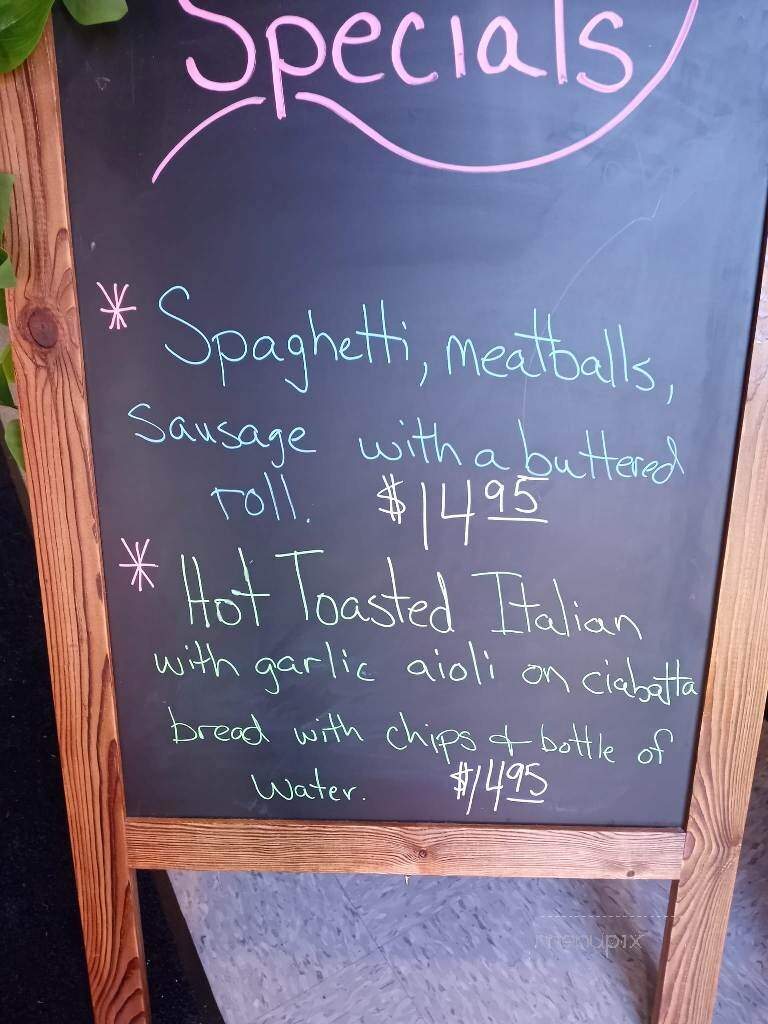 Specials
* Spaghetti, meatballs,
sausage with a buttered
roll. $14.95
* Hot Toasted Italian
with garlic aioli on ciabatta
bread with chips + bottle of
Water. $14.95
menupix